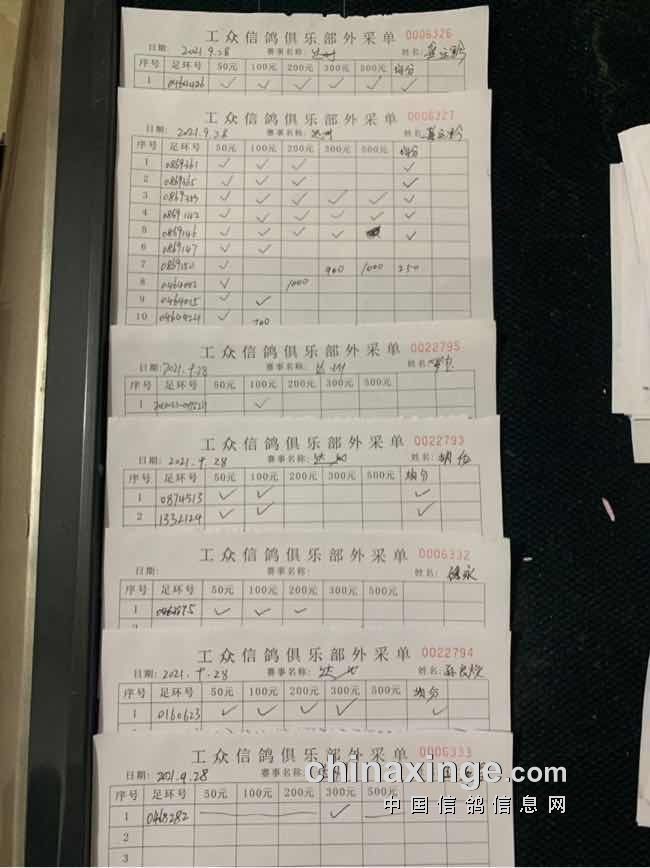 工众信鸽俱乐部外采单 0006326
日期: 2021.9.28 赛事名称: 达州 姓名:
序号 足环号 50元 100元 200元 300元 500元 均分
1 0464426 ✓ ✓ ✓ ✓ ✓ ✓
工众信鸽俱乐部外采单 0006327
日期: 2021.9.28 赛事名称: 达州 姓名:
序号 足环号 50元 100元 200元 300元 500元 均分
1 0869361 ✓ ✓ ✓ ✓
2 0869365 ✓ ✓ ✓ ✓
3 ✓ ✓ ✓ ✓ ✓ ✓
4 ✓ ✓ ✓ ✓ ✓ ✓
5 0869145 ✓ ✓ ✓ ✓ ✓
6 0869147 ✓ ✓
7 0869150 ✓ 900 1000 250
8 ✓ 1000
9 0464015 ✓ ✓
10 0464424 ✓ 700
工众信鸽俱乐部外采单 0022795
日期: 2021.9.28 赛事名称: 达州 姓名:
序号 足环号 50元 100元 200元 300元 500元
1 ✓
工众信鸽俱乐部外采单 0022793
日期: 2021.9.28 赛事名称: 达州 姓名:
序号 足环号 50元 100元 200元 300元 500元 均分
1 0874513 ✓ ✓ ✓
2 1332129 ✓ ✓ ✓
工众信鸽俱乐部外采单 0006332
日期: 赛事名称: 姓名:
序号 足环号 50元 100元 200元 300元 500元
1 ✓ ✓ ✓
工众信鸽俱乐部外采单 0022794
日期: 2021.9.28 赛事名称: 达州 姓名:
序号 足环号 50元 100元 200元 300元 500元 均分
1 0160623 ✓ ✓ ✓ ✓ ✓
工众信鸽俱乐部外采单 0006333
日期: 2021.9.28 赛事名称:
chinaxinge.com
序号 足环号 50元 100元 200元 300元 500元
中国信鸽信息网
1 0465282 ✓
2
3